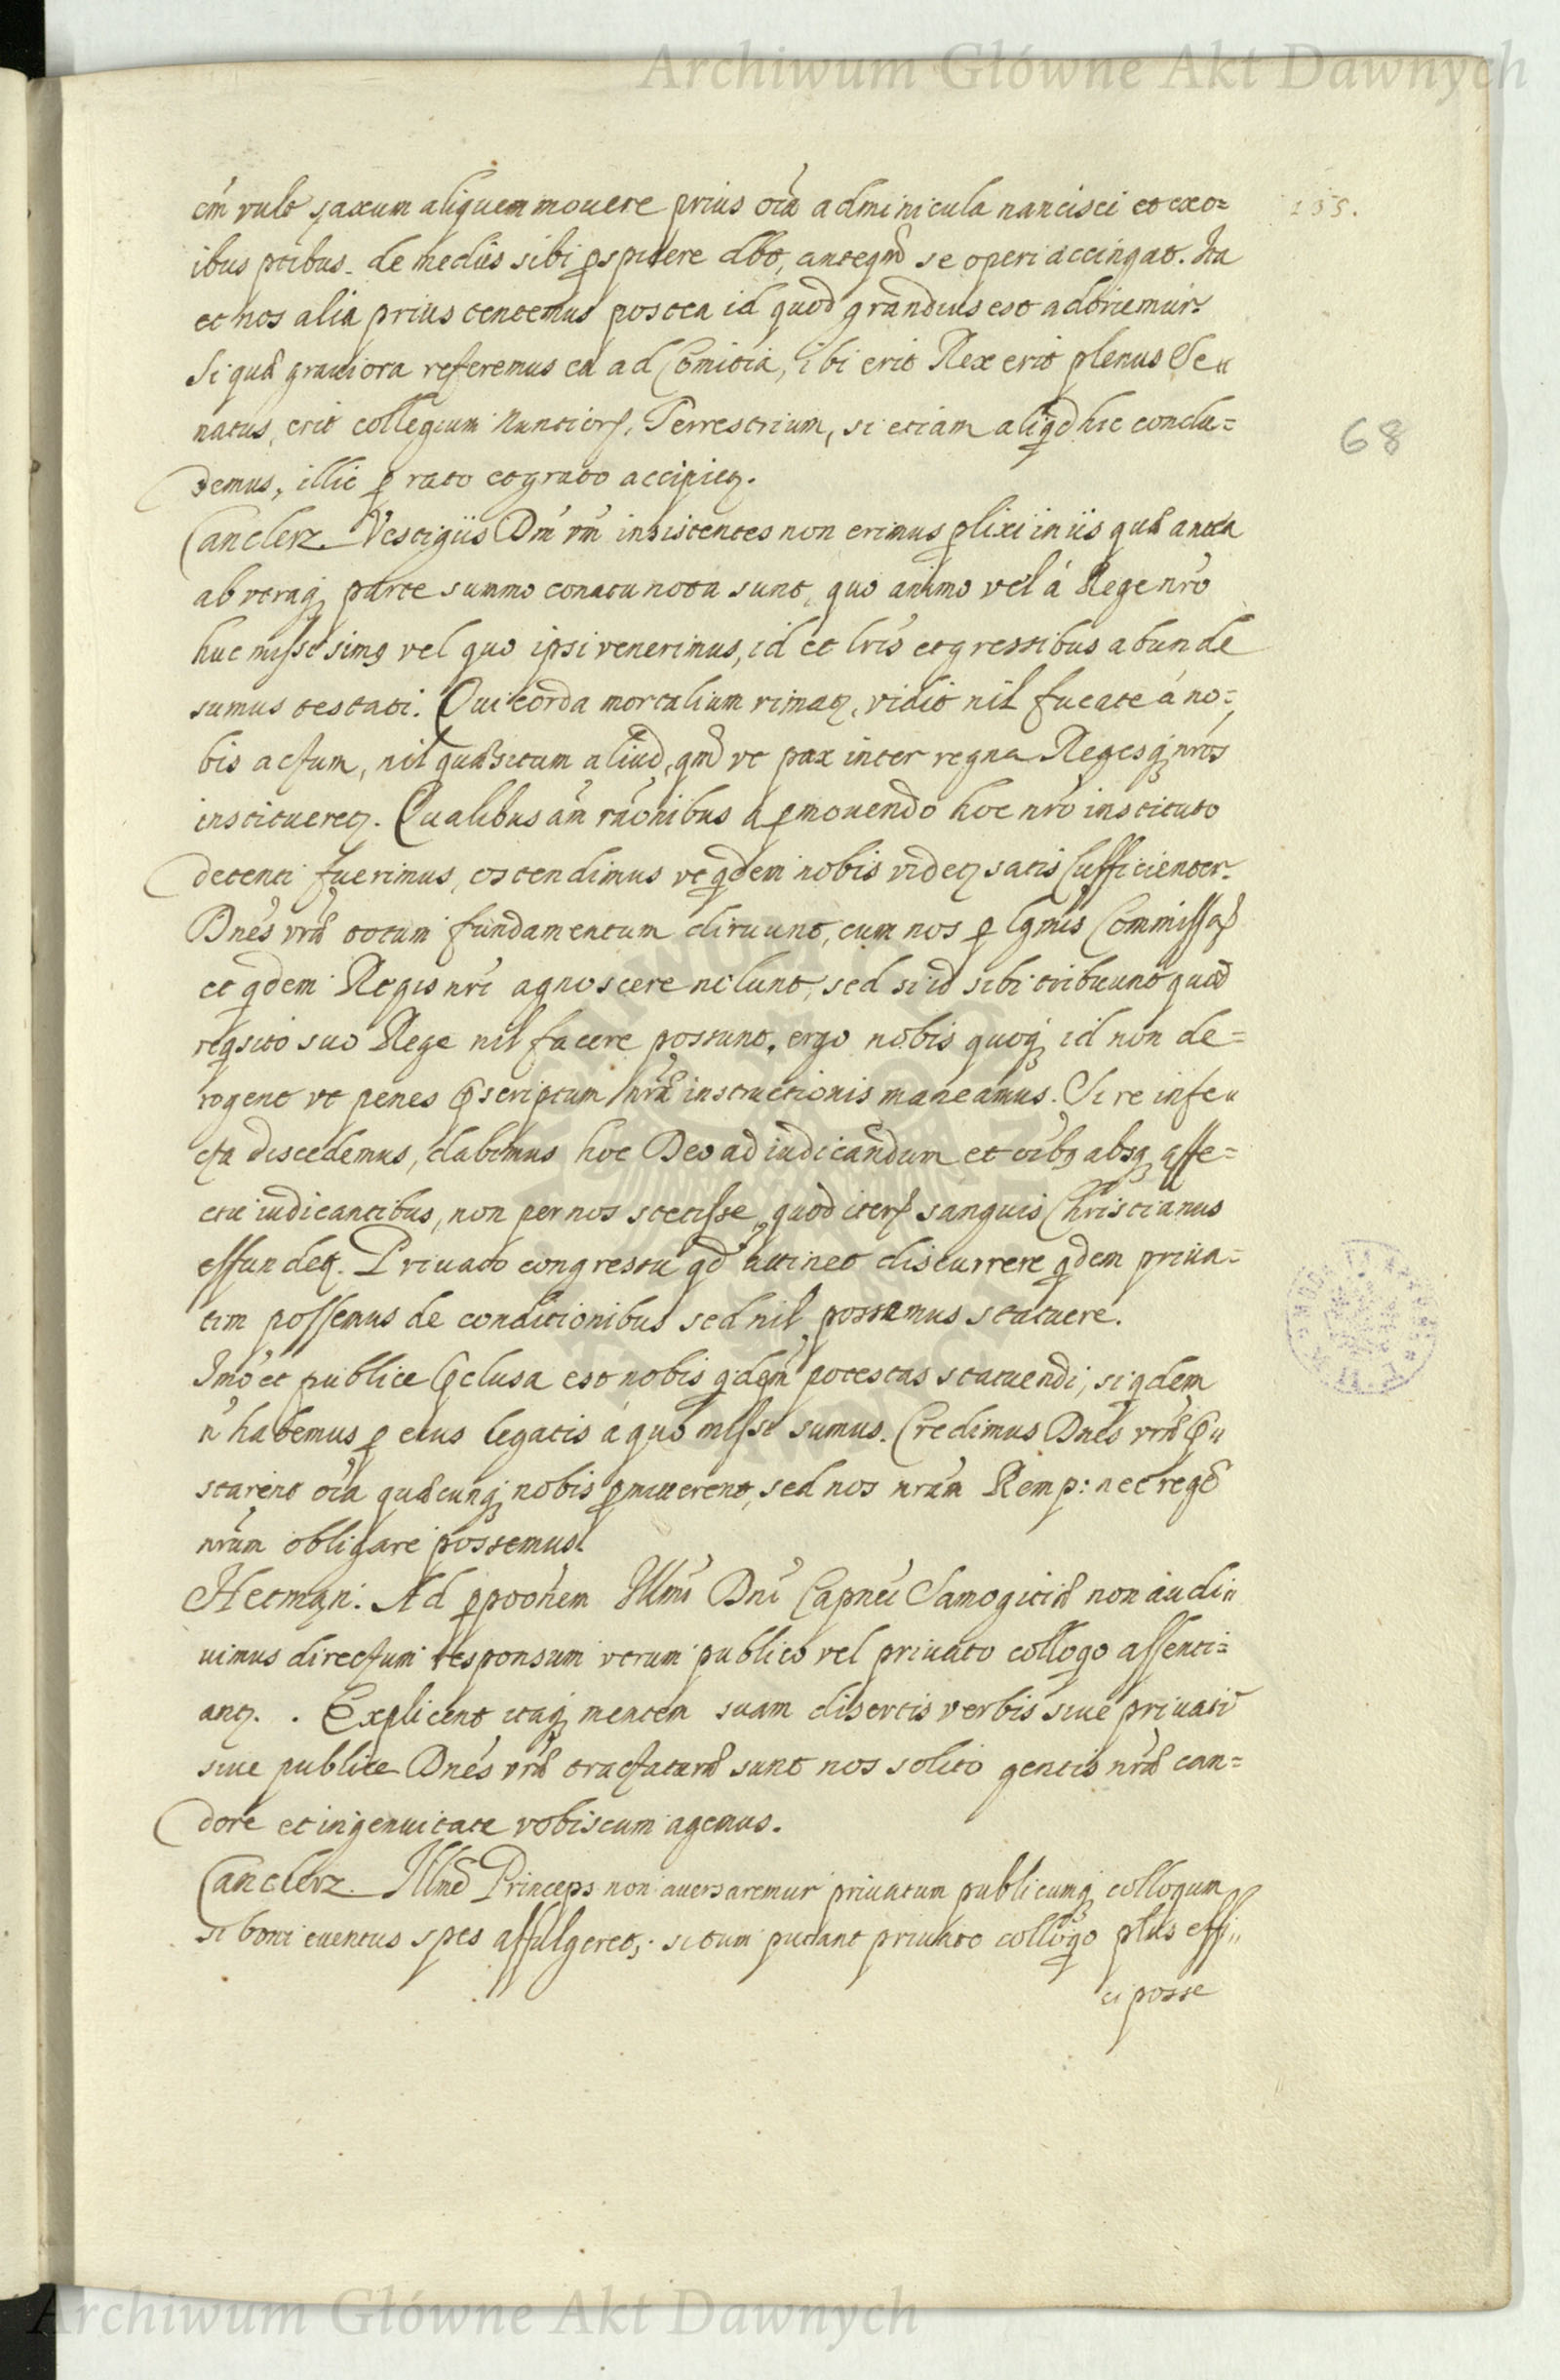 Archiwum Główne Akt Dawnych
135.
68
cm̃ vult saxum aliquem mouere prius oĩa adminicula nancisci et exo=
ibus ptibus de mediis sibi ꝓspicere dbt, anteqm̃ se operi accingat. Ita
et nos alia prius tentemus postea id quod grandius est adoriemur.
Si qua grauiora referemus ea ad Comitia, ibi erit Rex erit plenus Se„
natus, erit collegium Nuntiorꝝ Terrestrium, si etiam aliqd hic conclu=
demus, illic ꝓ rato et grato accipietꝛ.
Canclerz Vestigiis Dm̃ vm̃ insistentes non erimus ꝓlixi in iis quæ antea
ab vtraqꝫ parte summo conatu nota sunt, quo animo vel à Rege nr̃o
huc missi simꝰ vel quo ipsi venerimus, id et lr̃is et gressibus abunde
sumus testati. Qui corda mortalium rimatꝛ, vidit nil fucate à no=
bis actum, nil quæsitum aliud, qm̃ vt pax inter regna Regesqꝫ nr̃os
institueretꝛ. Qualibus aũt raõnibus a ꝓmouendo hoc nr̃o instituto
detenti fuerimus, ostendimus vt qdem nobis videtꝛ satis sufficienter.
Dnẽs vr̃æ totum fundamentum diruunt, cum nos ꝓ lgnis Commissaꝝ
et qdem Regis nr̃i agnoscere nolunt, sed si id sibi tribuunt quod
reqsito suo Rege nil facere possunt, ergo nobis quoqꝫ id non de=
rogent vt penes p̃scriptum nr̃æ instructionis maneamus. Si re infe„
cta discedemus, dabimus hoc Deo ad iudicandum et oĩbꝰ absqꝫ affe=
ctu iudicantibus, non per nos stetisse, quod iterꝝ sanguis Christianus
effundetꝛ. Priuato congressu qd attinet discurrere qdem priua=
tim possemus de conditionibus sed nil possemus statuere.
Imò et publice p̃clusa est nobis qdem potestas statuendi, siqdem
ñ habemus ꝓ eius legatis à quo missi sumus. Credimus Dnẽs vr̃æ p̃„
starent oĩa quæcunqꝫ nobis ꝓmitterent, sed nos nr̃am Remp: nec regẽ
nr̃um obligare possemus.
Hetman. Ad ꝓpoõnem Illmi Dni Capnei Samogitiæ non audi„
uimus directum responsum vtrum publico vel priuato colloqo assenti=
antꝛ. . Explicent itaqꝫ mentem suam disertis verbis siue priuatĩ
siue publice Dnẽs vr̃æ tractaturæ sunt nos solito gentis nr̃æ can=
dore et ingenuitate vobiscum agemus.
Canclerz. Illmẽ Princeps non auersaremur priuatum publicumqꝫ colloqum
si boni euentus spes affulgeret, si tum putant priuato colloqo plus effi„
ci posse
Archiwum Główne Akt Dawnych